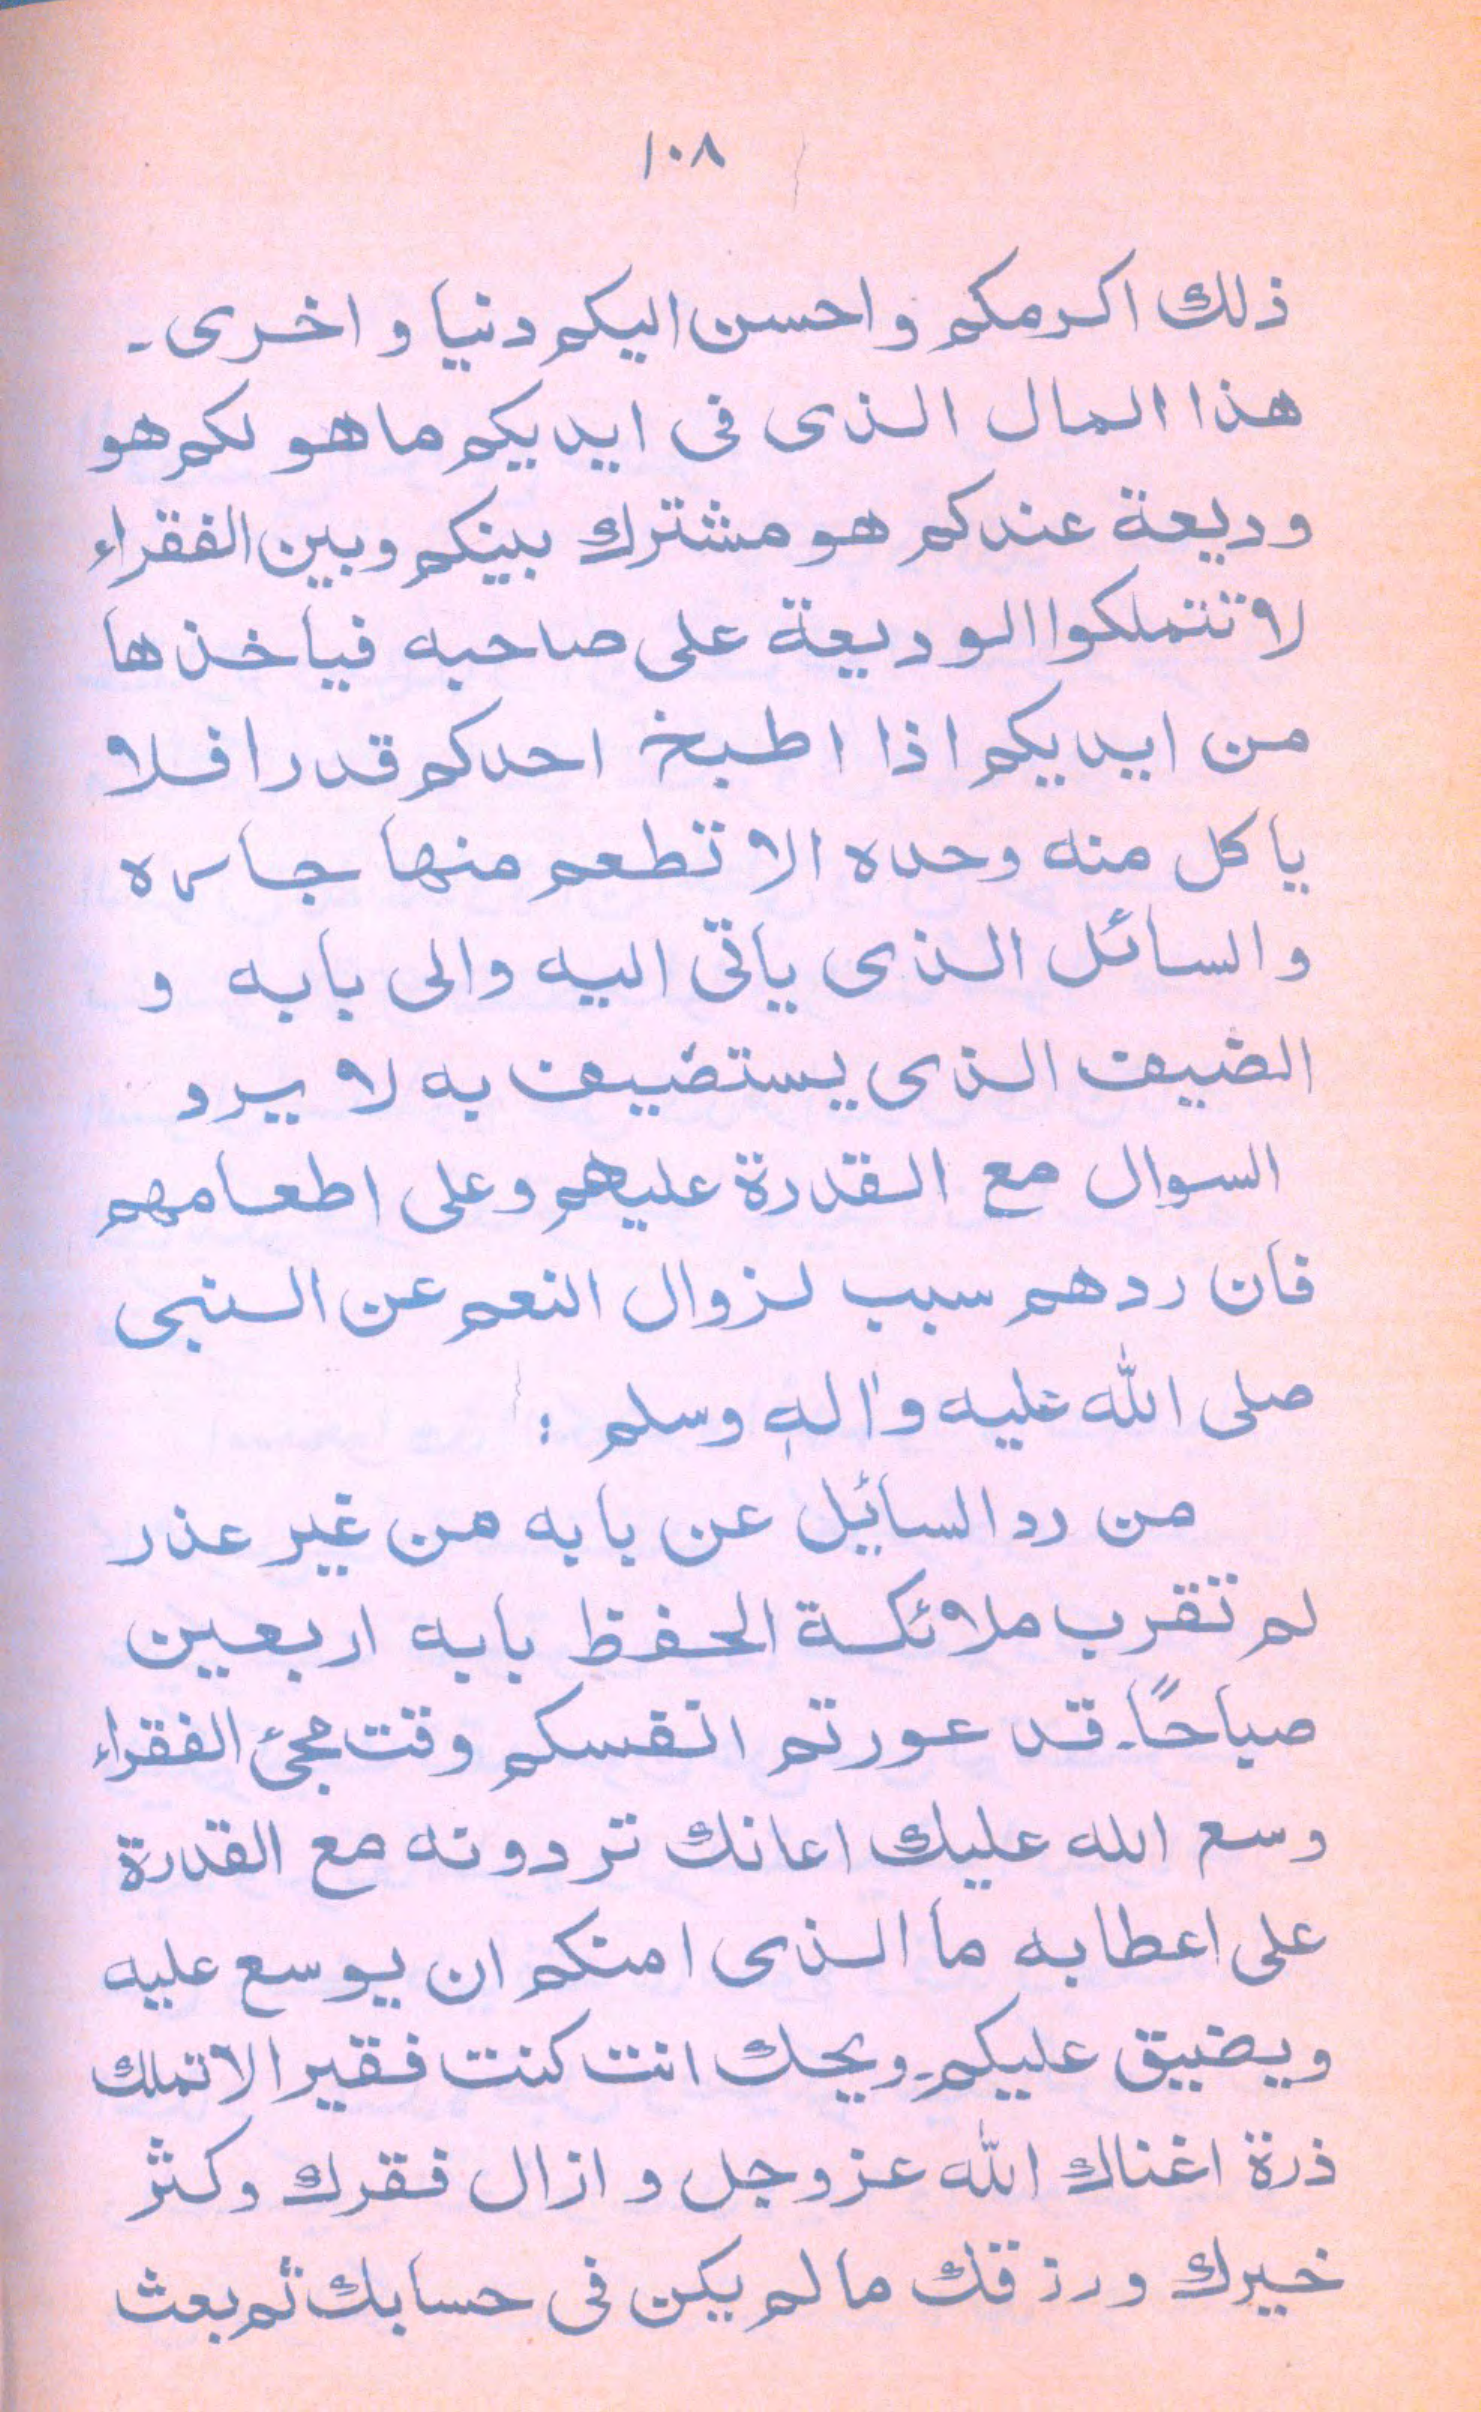 ١٠٨
ذلك اكرمكم واحسن اليكم دنيا و اخرى۔
هذا المال الذى فى ايديكم ما هو لكم هو
وديعة عندكم هو مشترك بينكم وبين الفقراء
لا تتملكوا الوديعة على صاحبه فياخذها
من ايديكم اذا اطبخ احدكم قدرا فلا
ياكل منه وحده الا تطعم منها جاره
والسائل الذى ياتى اليه والى بابه و
الضيف الذى يستضيف به لا يرد
السوال مع القدرة عليهم وعلى اطعامهم
فان ردهم سبب لزوال النعم عن النبى
صلى الله عليه واله وسلم :
من رد السائيل عن بابه من غير عذر
لم تقرب ملائكة الحفظ بابه اربعين
صباحًا۔ قد عورتم انفسكم وقت مجئ الفقراء
وسع الله عليك اعانك تردونه مع القدرة
على اعطابه ما الذى امنكم ان يوسع عليه
ويضيق عليكم۔ ويحك انت كنت فقيرا لا تملك
ذرة اغناك الله عزوجل و ازال فقرك وكثر
خيرك ورزقك ما لم يكن فى حسابك ثم بعث